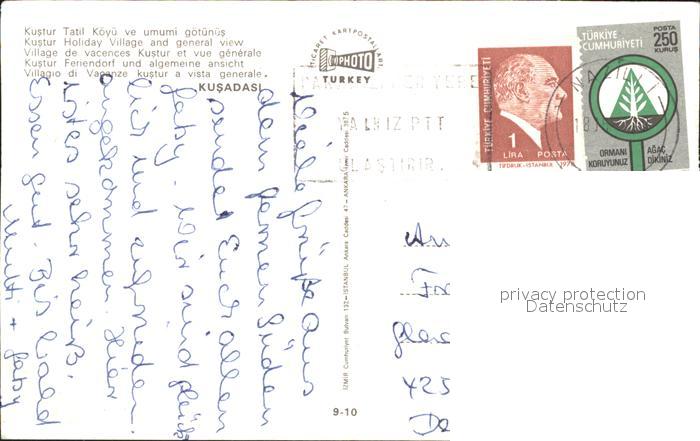 Kuştur Tatil Köyü ve umumi götünüş
Kuştur Holiday Village and general view
Village de vacences Kuştur et vue générale
Kuştur Feriendorf und algemeine ansicht
Villagio di Vaganze kuştur a vista generale.
KUŞADASI
TICARET KARTPOSTALLARI
PHOTO
TURKEY
TÜRKİYE CUMHURİYETİ
1
LİRA POSTA
TİFDRUK-İSTANBUL
TÜRKİYE
CUMHURİYETİ
POSTA
250
KURUŞ
ORMANI
KORUYUNUZ
AĞAÇ
DİKİNİZ
YALNIZ PTT
Viele Grüße aus
dem fernen Süden
sendet Euch allen
Gaby. Wir sind glück-
lich und zufrieden
angekommen. Hier
ist es sehr heiß.
Essen gut. Bis bald
Mutti + Gaby
An
425
privacy protection
Datenschutz
İZMİR Cumhuriyet Bulvarı 132 - İSTANBUL Ankara Caddesi 47 - ANKARA
9-10